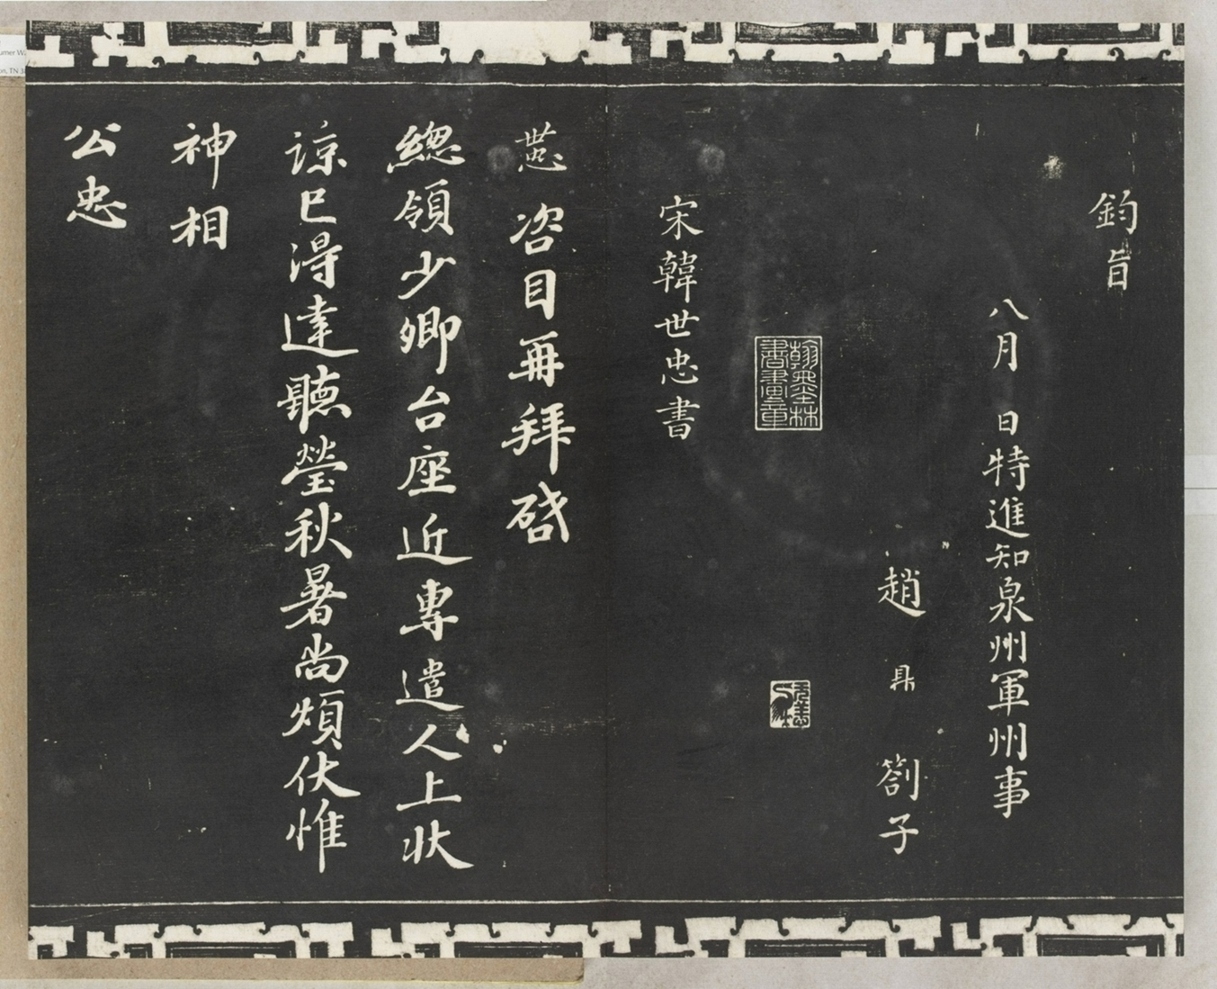 鈞旨
八月 日特進知泉州軍州事
趙 鼎 劄子
翰墨林
書畫章
宋韓世忠書
世忠 咨目再拜啓
總領少卿台座近專遣人上狀
諒已淂達聽瑩秋暑尚煩伏惟
神相
公忠